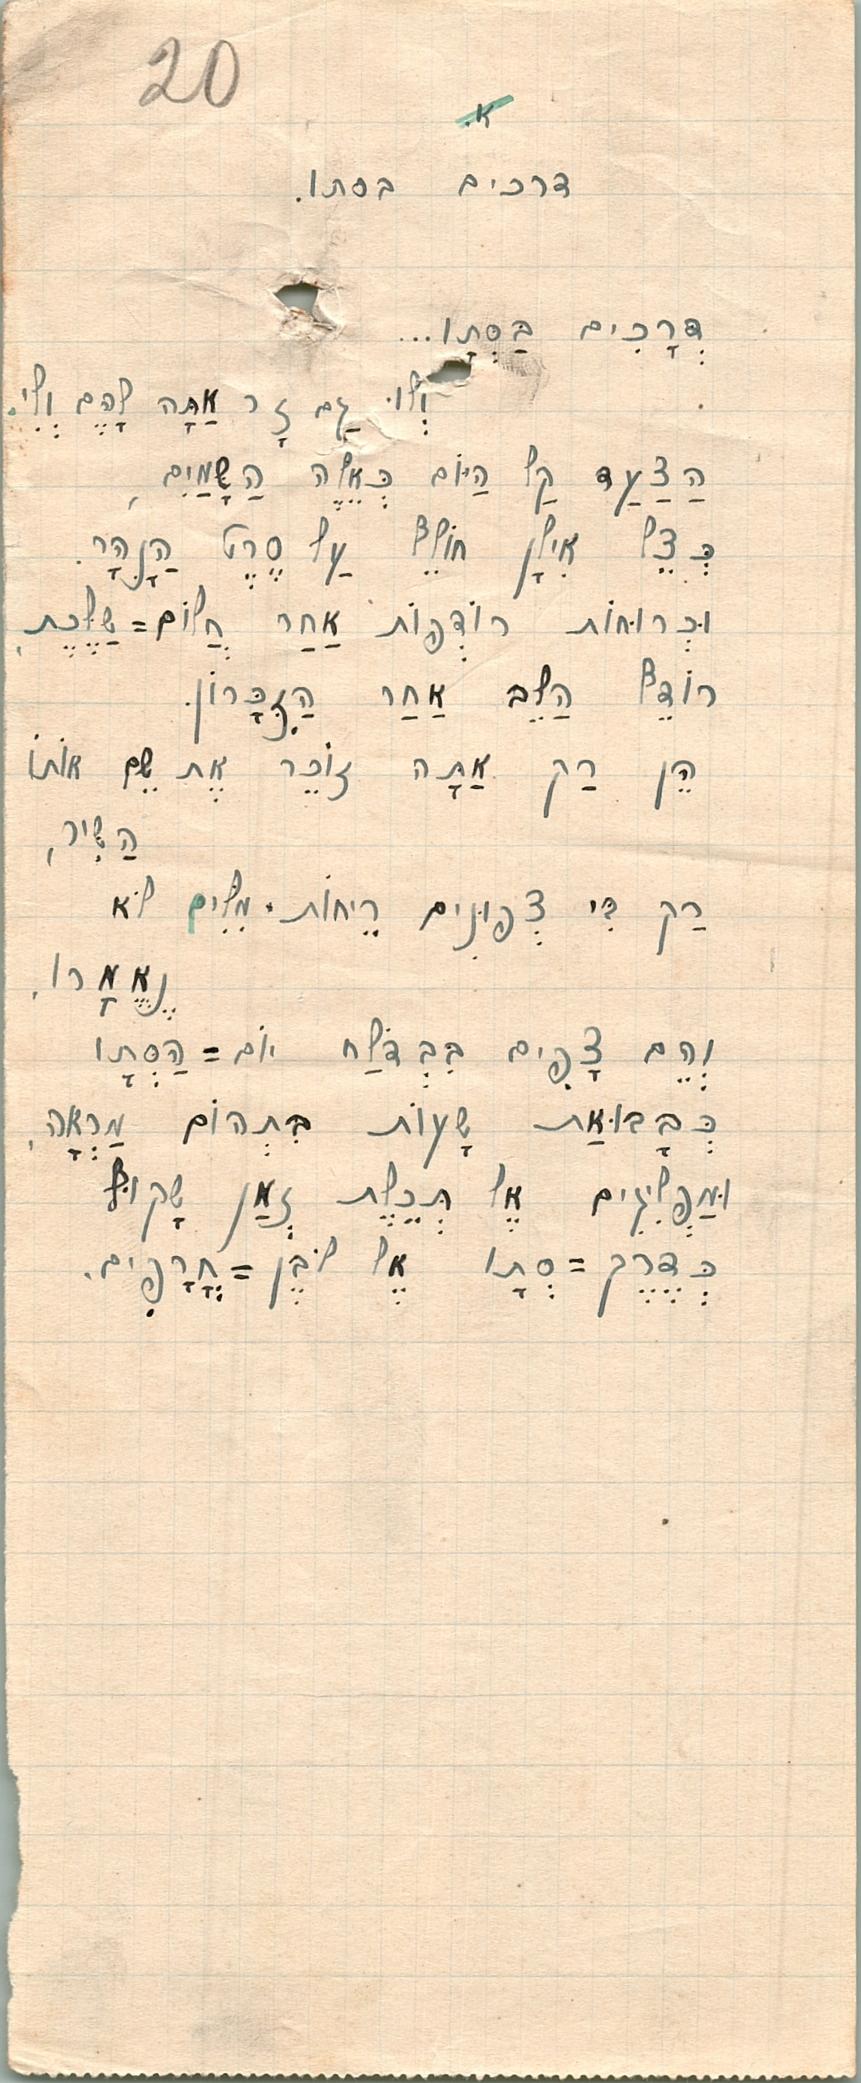 20
א.
דרכים בסתו.
דְּרָכִים בַּסְּתָו...
וְלוּ גַּם זָר אַתָּה לָהֶם וָלִי.
הַצַּעַד קַל הַיּוֹם כְּאֵלֶּה הַשָּׁמַיִם,
כְּצֵל אִילָן חוֹלֵף עַל סֶרֶט הַנָּהָר.
וּכְרוּחוֹת רוֹדְפוֹת אַחַר חֲלוֹם=שַׁלֶּכֶת,
רוֹדֵף הַלֵּב אַחַר הַזִּכָּרוֹן.
הֵן רַק אַתָּה זוֹכֵר אֶת שֵׁם אוֹתוֹ
הַשִּׁיר,
רַק לִי צְפוּנִים רֵיחוֹת-מִלִּים לֹא
נֶאֱמָרוּ.
וְהֵם צָפִים בִּבְדֹלַח יוֹם=הַסְּתָו
כְּבָבוּאַת שָׁעוֹת בִּתְהוֹם מַרְאָה,
וּמַפְלִיגִים אֶל תְּכֵלֶת זְמַן שָׁקוּף
כְּדֶרֶךְ=סְתָו אֶל לֹבֶן=חֳרָפִים.